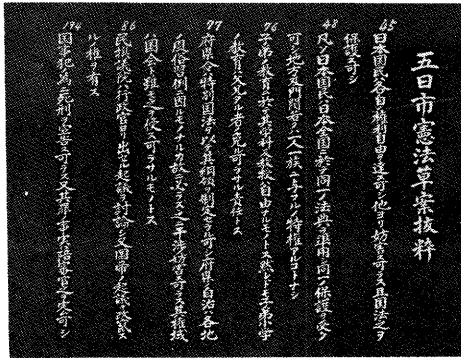 五日市憲法草案抜粋
45
日本国民ハ各自ノ権利自由ヲ達ス可シ他ヨリ妨害ス可ラス且国法之ヲ
保護ス可シ
48
凡ソ日本国民ハ日本全国ニ於テ同一ノ法典ヲ準用シ同一ノ保護ヲ受ク
可シ地方及門閥若クハ一人一族ニ与フルノ特権アルコトナシ
76
子弟ノ教育ニ於テ其学科及教授ハ自由ナルモノトス然レトモ子弟小学
ノ教育ハ父兄タル者ノ免ル可ラサル責任トス
77
府県令ハ特別ノ国法ヲ以テ其綱領ヲ制定セラル可シ府県ノ自治ハ各地
ノ風俗習例ニ因ルモノナルカ故ニ必ラス之ニ干渉妨害ス可ラス其権域
ハ国会ト雖モ之ヲ侵ス可ラサルモノトス
86
民撰議院ハ行政官ヨリ出セル起議ヲ討論シ又国帝ノ起議ヲ改竄スル
ル権ヲ有ス
194
国事犯ノ為ニ死刑ヲ宣告ス可ラス又其罪ノ事実ハ陪審官之ヲ定ム可シ